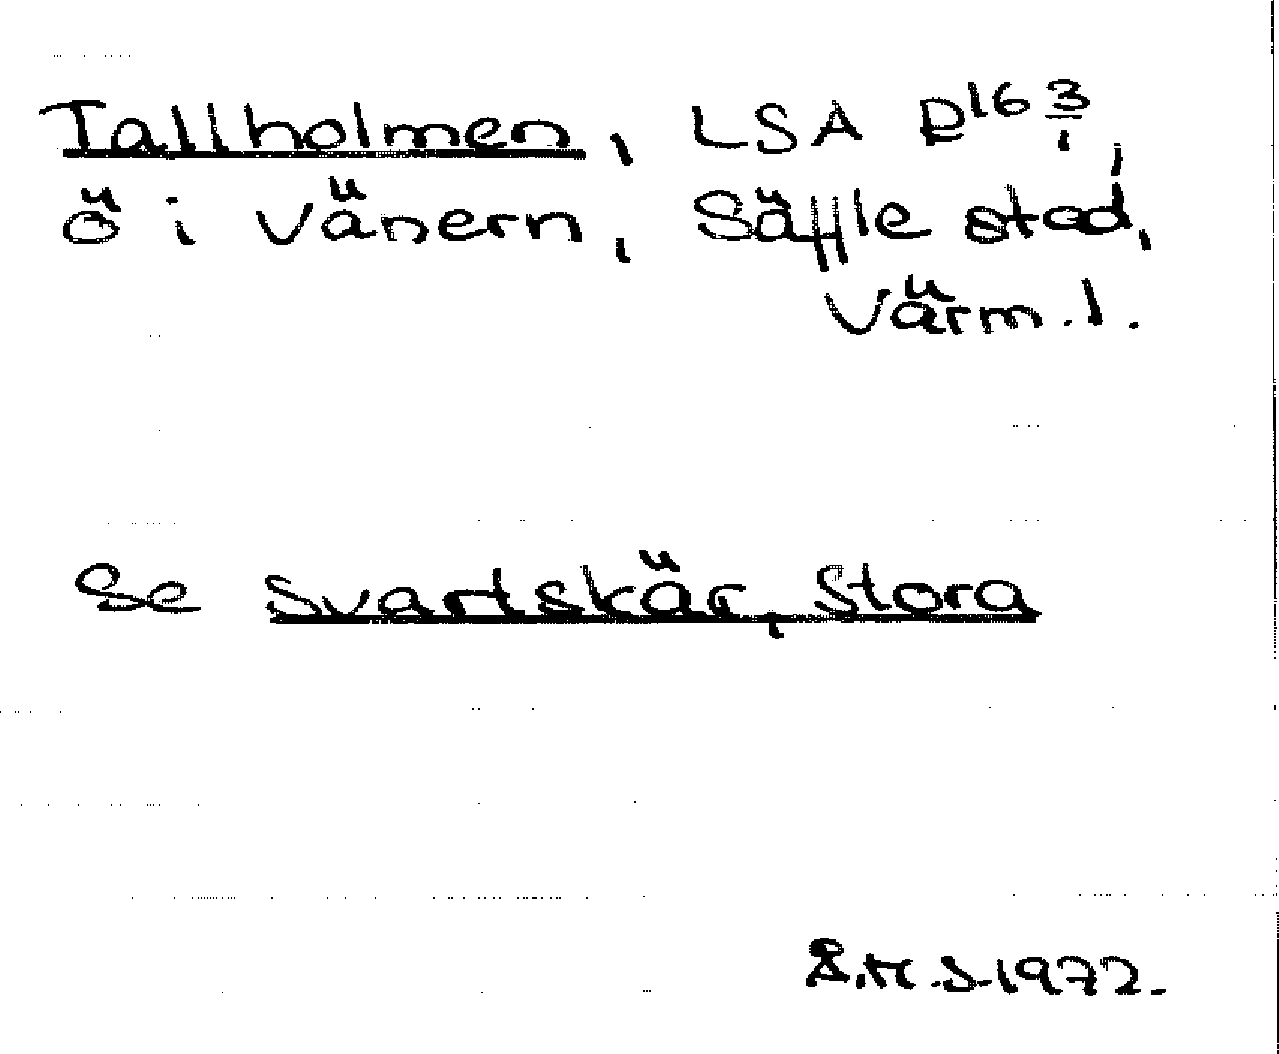 Tallholmen, LSA D16 3/1,
ö i Vänern, Säffle stad,
Värm.l.
Se Svartskär, Stora
1972.